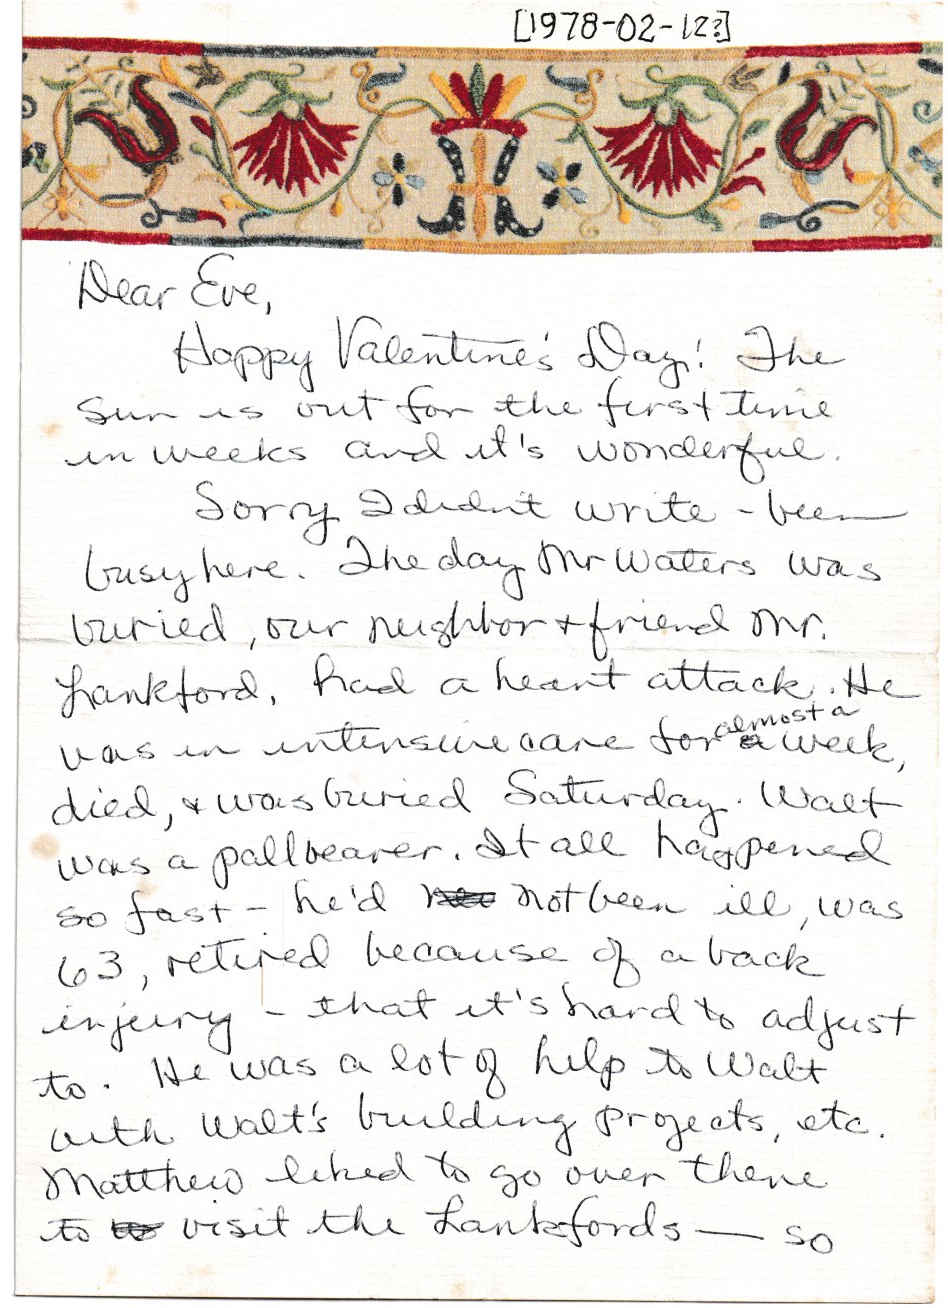 [1978-02-12?]
Dear Eve,
Happy Valentine's Day! The
sun is out for the first time
in weeks and it's wonderful.
Sorry I didn't write - been
busy here. The day Mr Waters was
buried, our neighbor + friend Mr.
Lankford, had a heart attack. He
was in intensive care for almost a week,
died, + was buried Saturday. Walt
was a pallbearer. It all happened
so fast - he'd not been ill, was
63, retired because of a back
injury - that it's hard to adjust
to. He was a lot of help to Walt
with Walt's building projects, etc.
Matthew liked to go over there
to visit the Lankfords — so